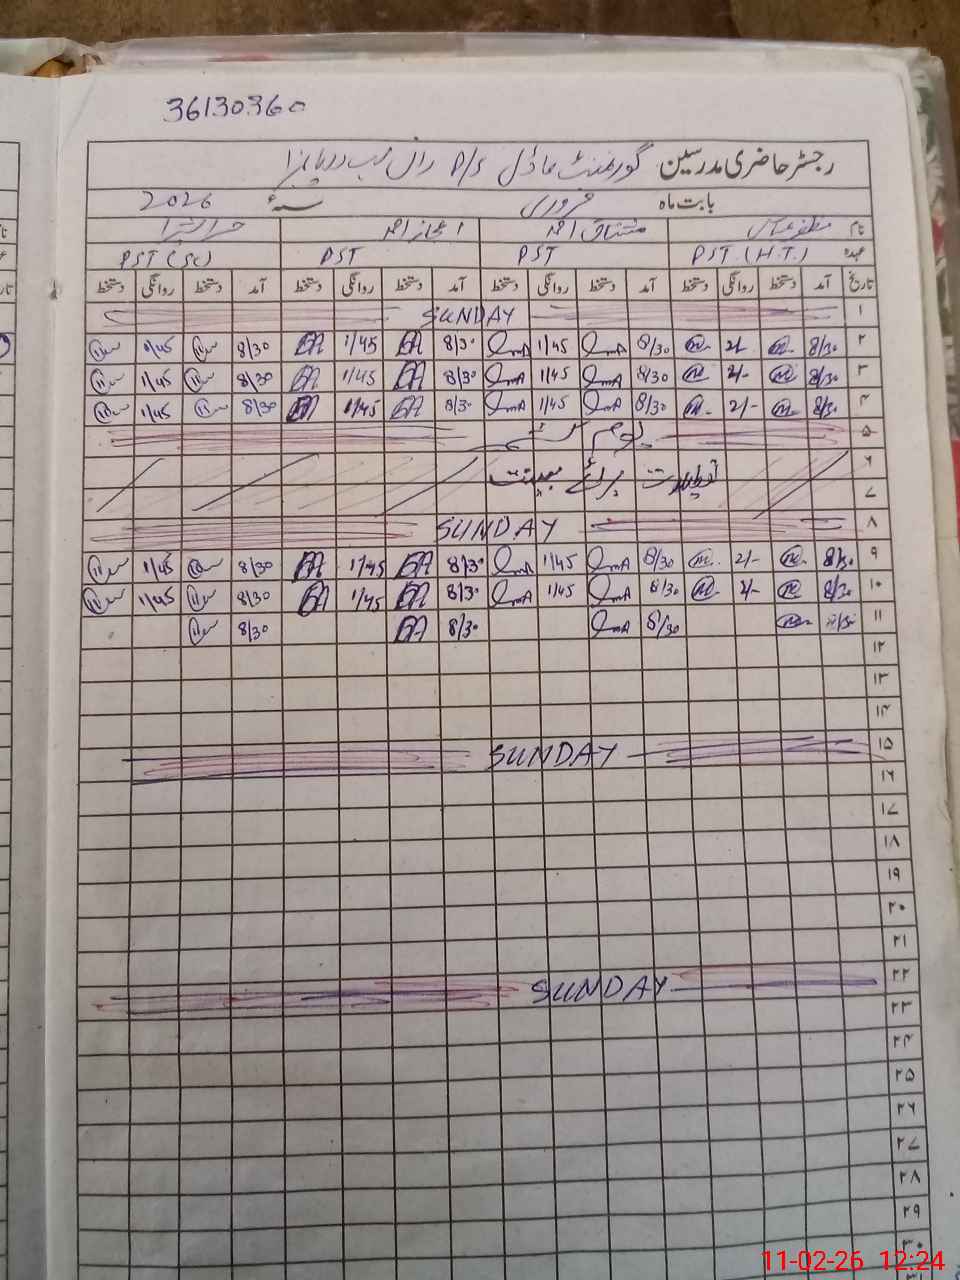 36130360
رجسٹر حاضری مدرسین گورنمنٹ ماڈل P/S
بابت ماہ فروری سنہ 2026
نام مظفر عباس مشتاق احمد اعجاز احمد
عہدہ PST (H.T.) PST PST PST (SC)
تاریخ آمد دستخط روانگی دستخط آمد دستخط روانگی دستخط آمد دستخط روانگی دستخط آمد دستخط روانگی دستخط
۱ SUNDAY
۲ 8/30 2/- 8/30 1/45 8/30 1/45 8/30 1/45
۳ 8/30 2/- 8/30 1/45 8/30 1/45 8/30 1/45
۴ 8/30 2/- 8/30 1/45 8/30 1/45 8/30 1/45
۵
۶ تعطیلات برائے بسنت
۷
۸ SUNDAY
۹ 8/30 2/- 8/30 1/45 8/30 1/45 8/30 1/45
۱۰ 8/30 2/- 8/30 1/45 8/30 1/45 8/30 1/45
۱۱ 8/30 8/30 8/30
۱۲
۱۳
۱۴
۱۵ SUNDAY
۱۶
۱۷
۱۸
۱۹
۲۰
۲۱
۲۲ SUNDAY
۲۳
۲۴
۲۵
۲۶
۲۷
۲۸
۲۹
۳۰
11-02-26 12:24